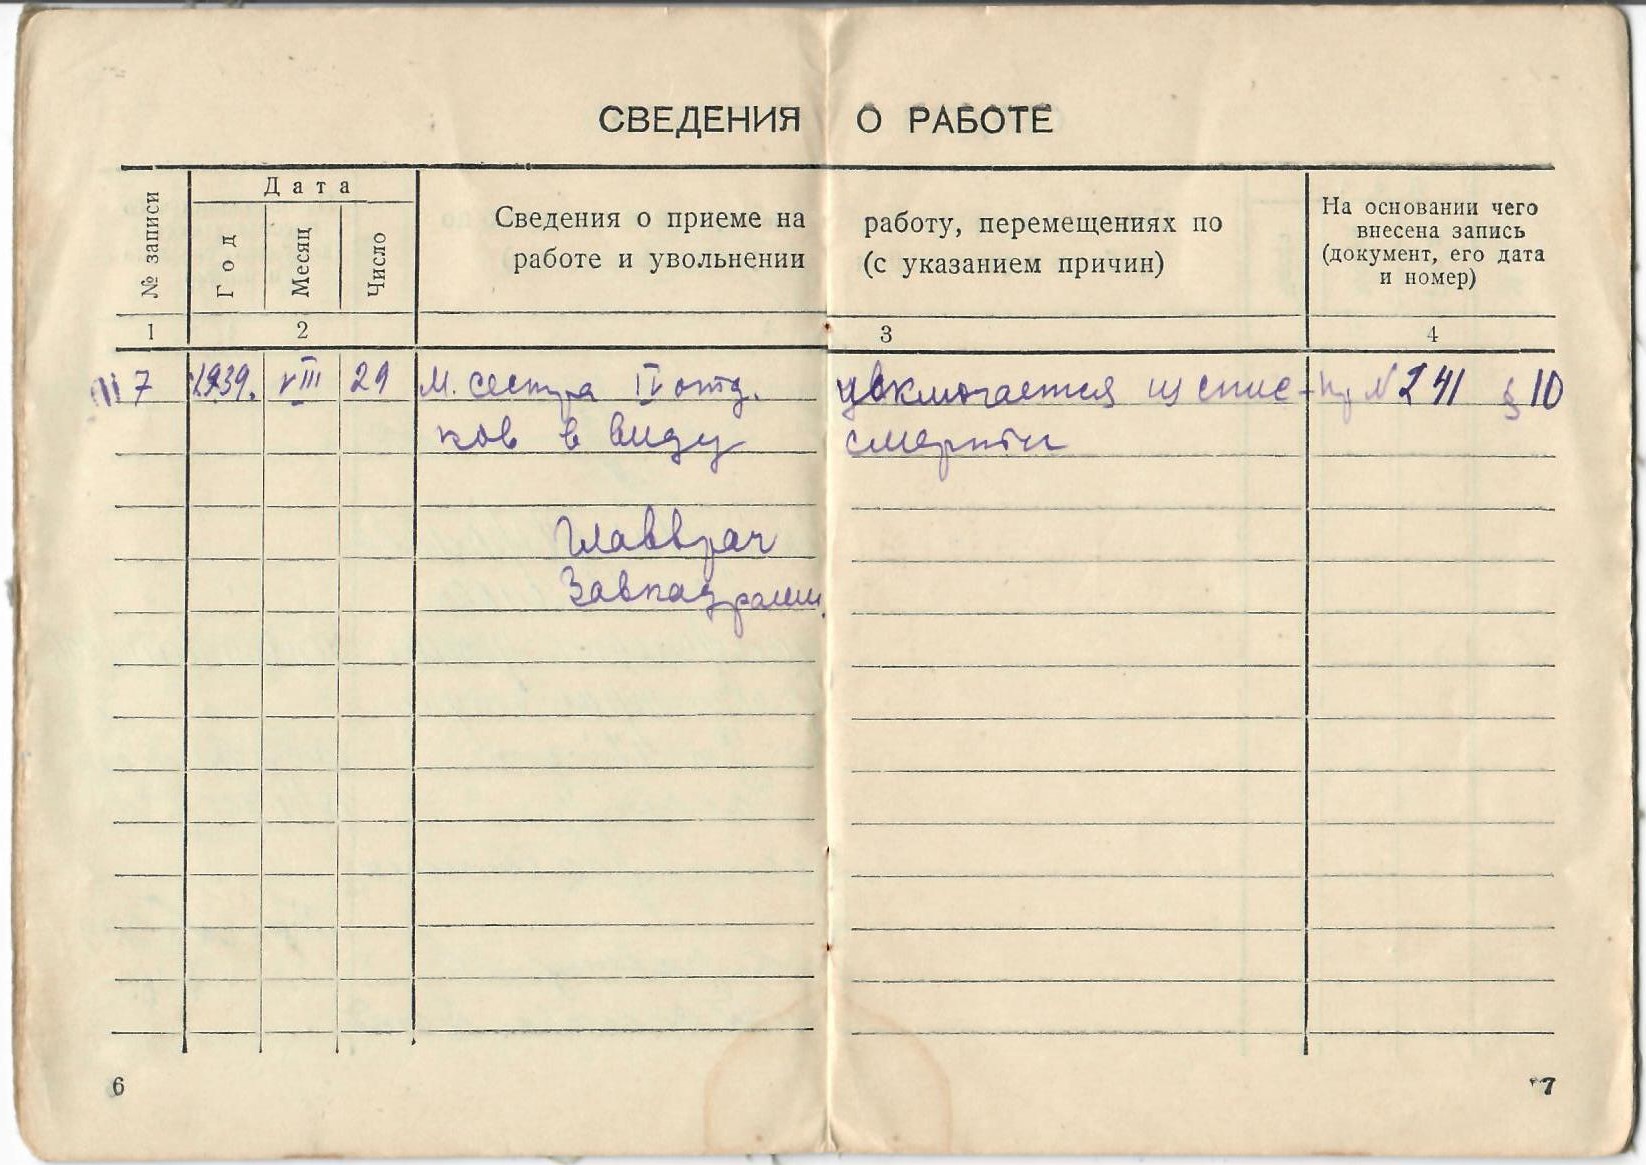 СВЕДЕНИЯ О РАБОТЕ
№ записи
Дата
Год
Месяц
Число
Сведения о приеме на работу, перемещениях по
работе и увольнении (с указанием причин)
На основании чего
внесена запись
(документ, его дата
и номер)
1 2 3 4
7 1939. VIII 29 М. сестра IV отд. исключается из спис- Пр № 241 § 10
ков в виду смерти
Главврач
Завкадрами
6 7